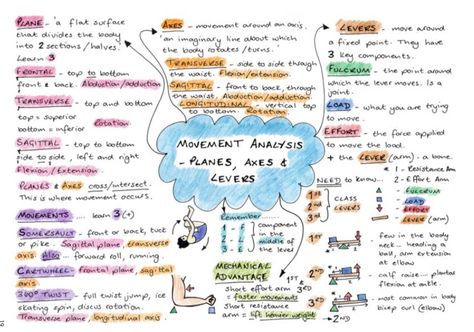 PLANE - 'a flat surface
that divides the body
into 2 sections/halves.'
Learn 3
FRONTAL - top to bottom
front & back. Abduction/adduction
TRANSVERSE - top and bottom
top = superior
bottom = inferior Rotation
SAGITTAL - top to bottom
side to side, left and right
Flexion/Extension
PLANES & AXES cross/intersect.
This is where movement occurs.
MOVEMENTS ... learn 3 (+)
SOMERSAULT - front or back, tuck
or pike. Sagittal plane, transverse
axis. Also - forward roll, running.
CARTWHEEL - frontal plane, sagittal
axis
360° TWIST - full twist jump, ice
skating spin, discus rotation.
Transverse plane, longitudinal axis
AXES - movement around an axis.
'an imaginary line about which
the body rotates/turns.'
TRANSVERSE - side to side through
the waist. Flexion/extension.
SAGITTAL - front to back, through
the waist. Abduction/adduction
LONGITUDINAL - vertical top
to bottom. Rotation.
MOVEMENT ANALYSIS
- PLANES, AXES &
LEVERS
Remember...
1 F component
2 L in the middle
3 E of the lever
MECHANICAL
ADVANTAGE
1ST
3RD
short effort arm
= faster movements
short resistance
arm = lift heavier weight
2ND
LEVERS - move around
a fixed point. They have
3 key components.
FULCRUM - the point around
which the lever moves. Is a
joint.
LOAD - what you are trying
to move.
EFFORT - the force applied
to move the load.
+ the LEVER (arm) - a bone.
1 - Resistance Arm
2 - Effort Arm
NEED to know...
- FULCRUM
- LOAD
- EFFORT
- LEVER (arm)
1ST
2ND
3RD
CLASS
LEVERS
1ST
few in the body
neck... heading a
ball, arm extension
at elbow
2ND
calf raise - plantar
flexion at ankle.
3RD
most common in body
bicep curl (elbow)